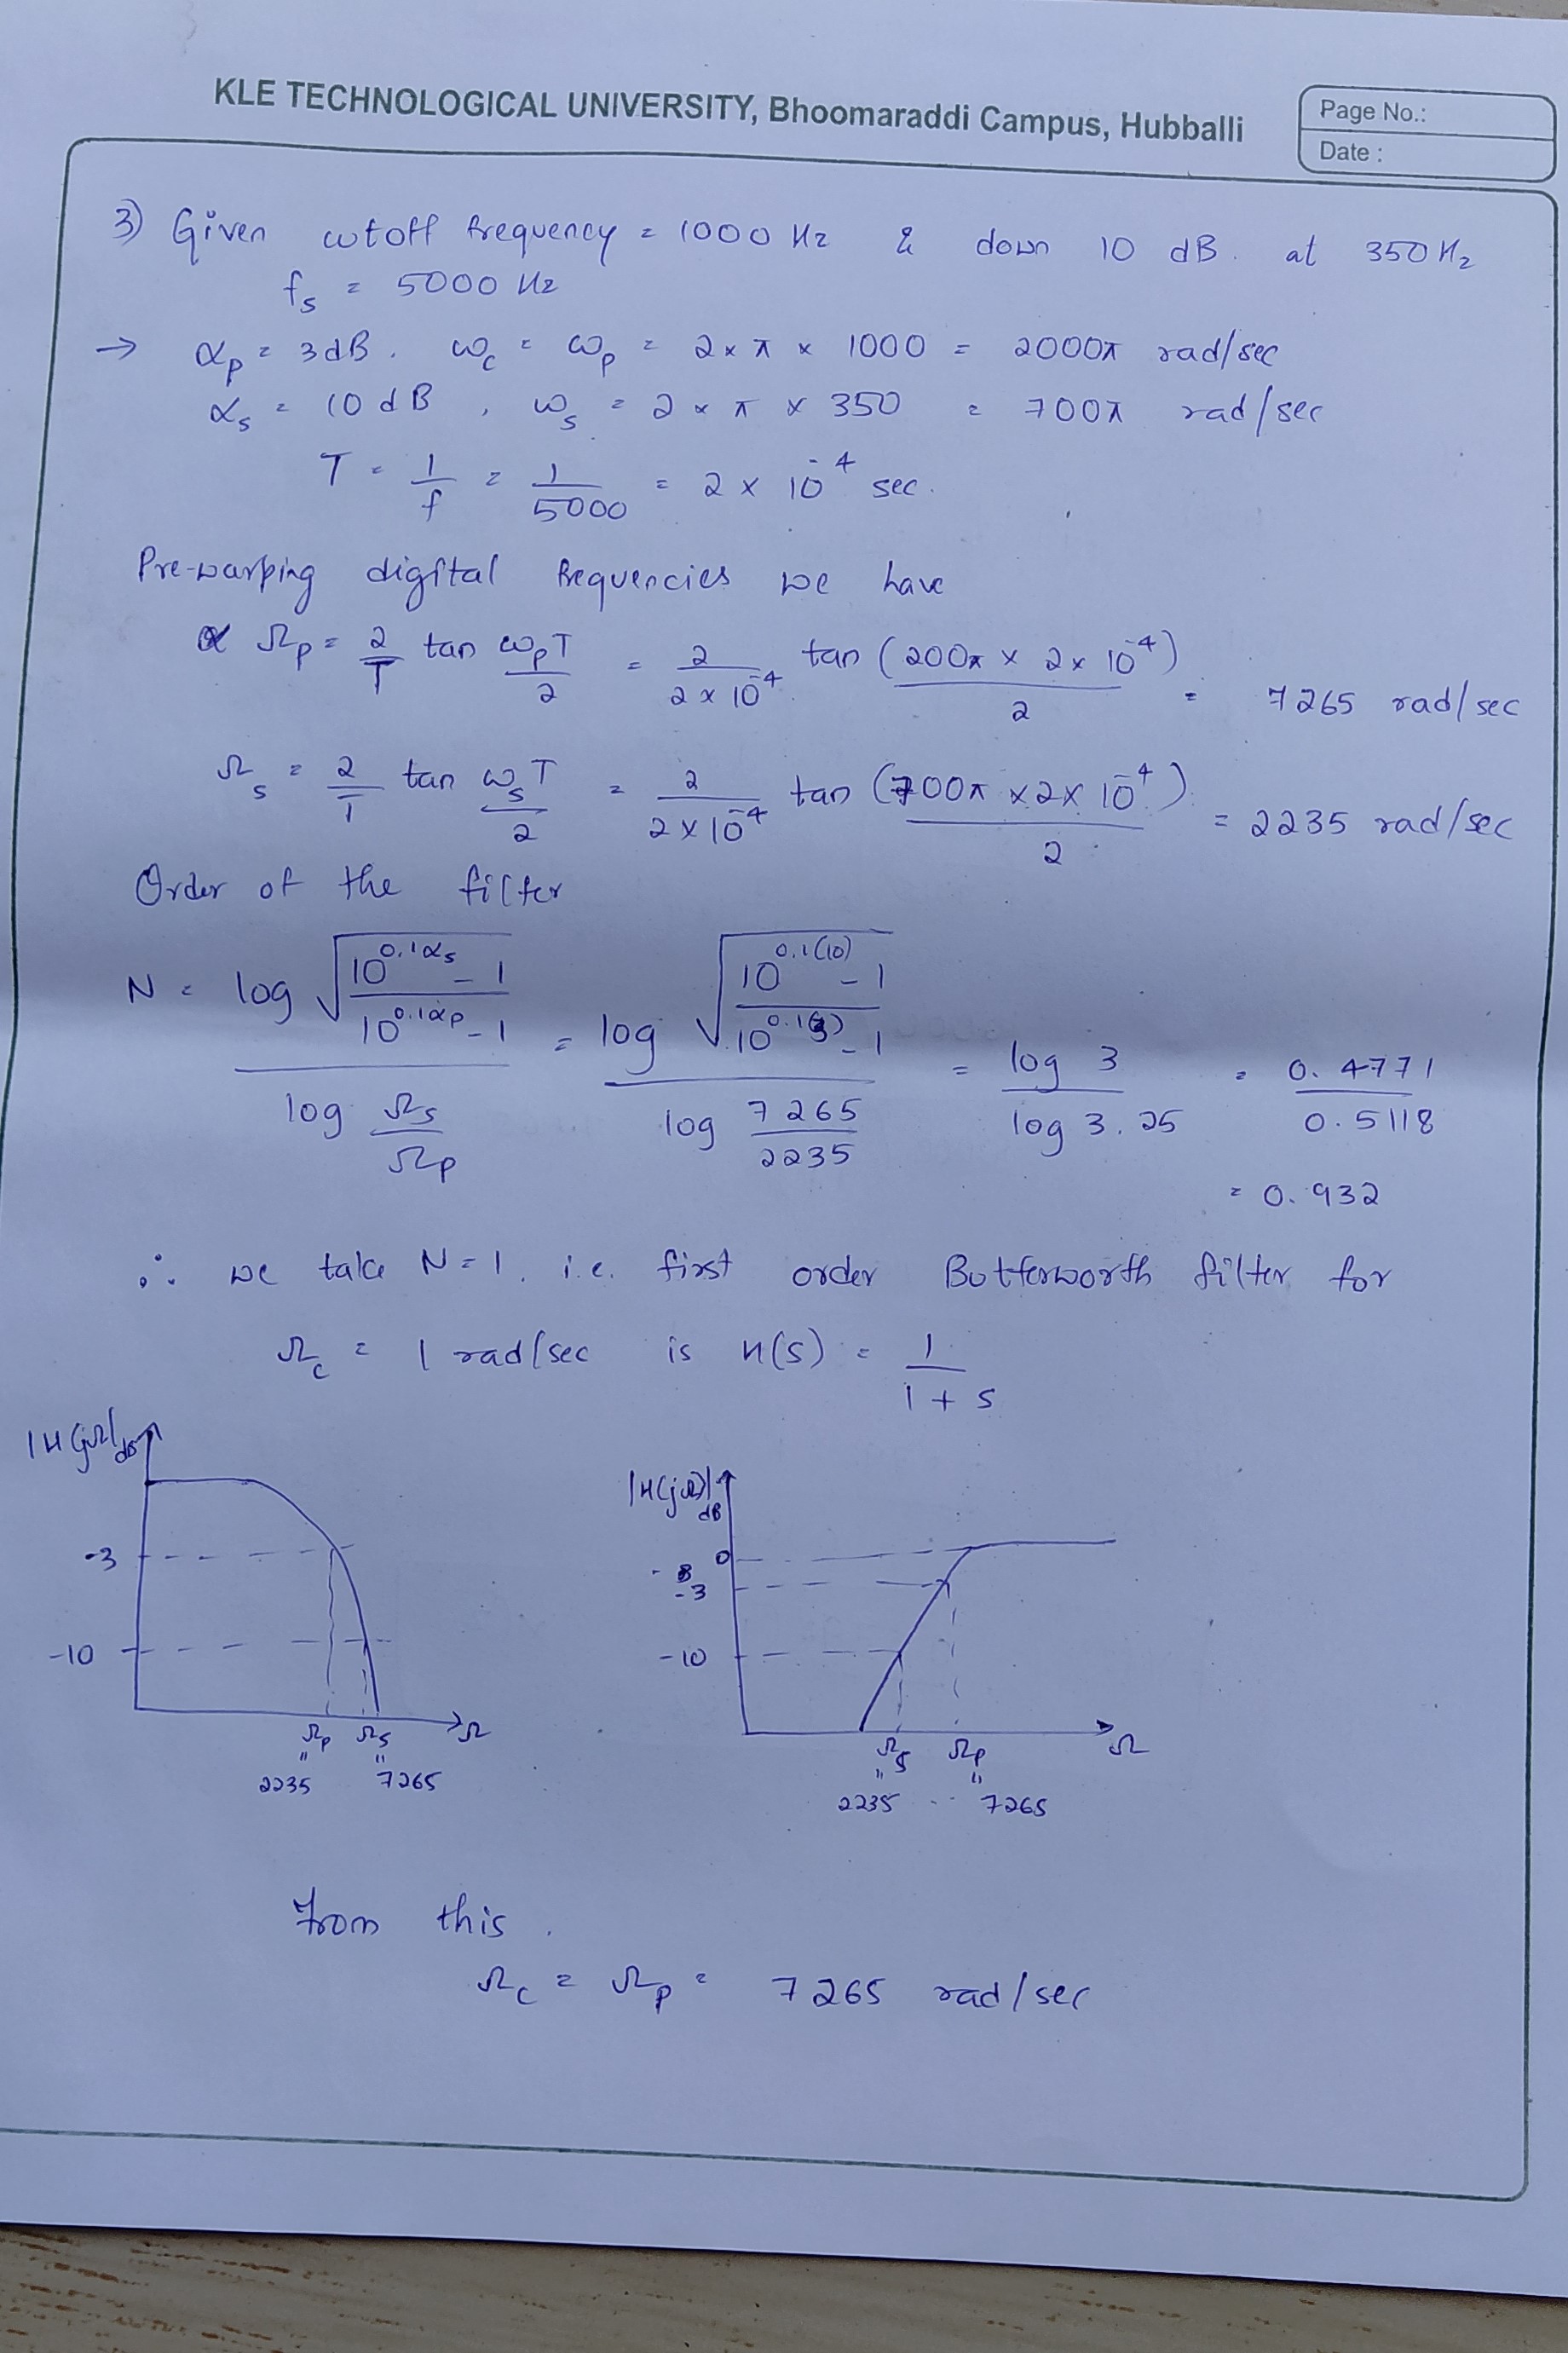 KLE TECHNOLOGICAL UNIVERSITY, Bhoomaraddi Campus, Hubballi
Page No.:
Date :
3) Given cutoff frequency = 1000 Hz & down 10 dB. at 350 Hz
fs = 5000 Hz
→ αp = 3dB. ωc = ωp = 2 x π x 1000 = 2000π rad/sec
αs = 10 dB, ωs = 2 x π x 350 = 700π rad/sec
T = 1/f = 1/5000 = 2 x 10^-4 sec.
Pre-warping digital frequencies we have
Ωp = 2/T tan ωpT/2 = 2/(2 x 10^-4) tan (200π x 2 x 10^-4)/2 = 7265 rad/sec
Ωs = 2/T tan ωsT/2 = 2/(2 x 10^-4) tan (700π x 2 x 10^-4)/2 = 2235 rad/sec
Order of the filter
N = log √((10^0.1αs - 1)/(10^0.1αp - 1)) / log Ωs/Ωp = log √((10^0.1(10) - 1)/(10^0.1(3) - 1)) / log 7265/2235 = log 3/log 3.25 = 0.4771/0.5118
= 0.932
∴ we take N = 1. i.e. first order Butterworth filter for
Ωc = 1 rad/sec is H(s) = 1/(1 + s)
|H(jΩ)|dB
-3
-10
Ωp Ωs Ω
" "
2235 7265
|H(jΩ)|dB
0
-3
-10
Ωs Ωp Ω
" "
2235 .. 7265
From this.
Ωc = Ωp = 7265 rad/sec